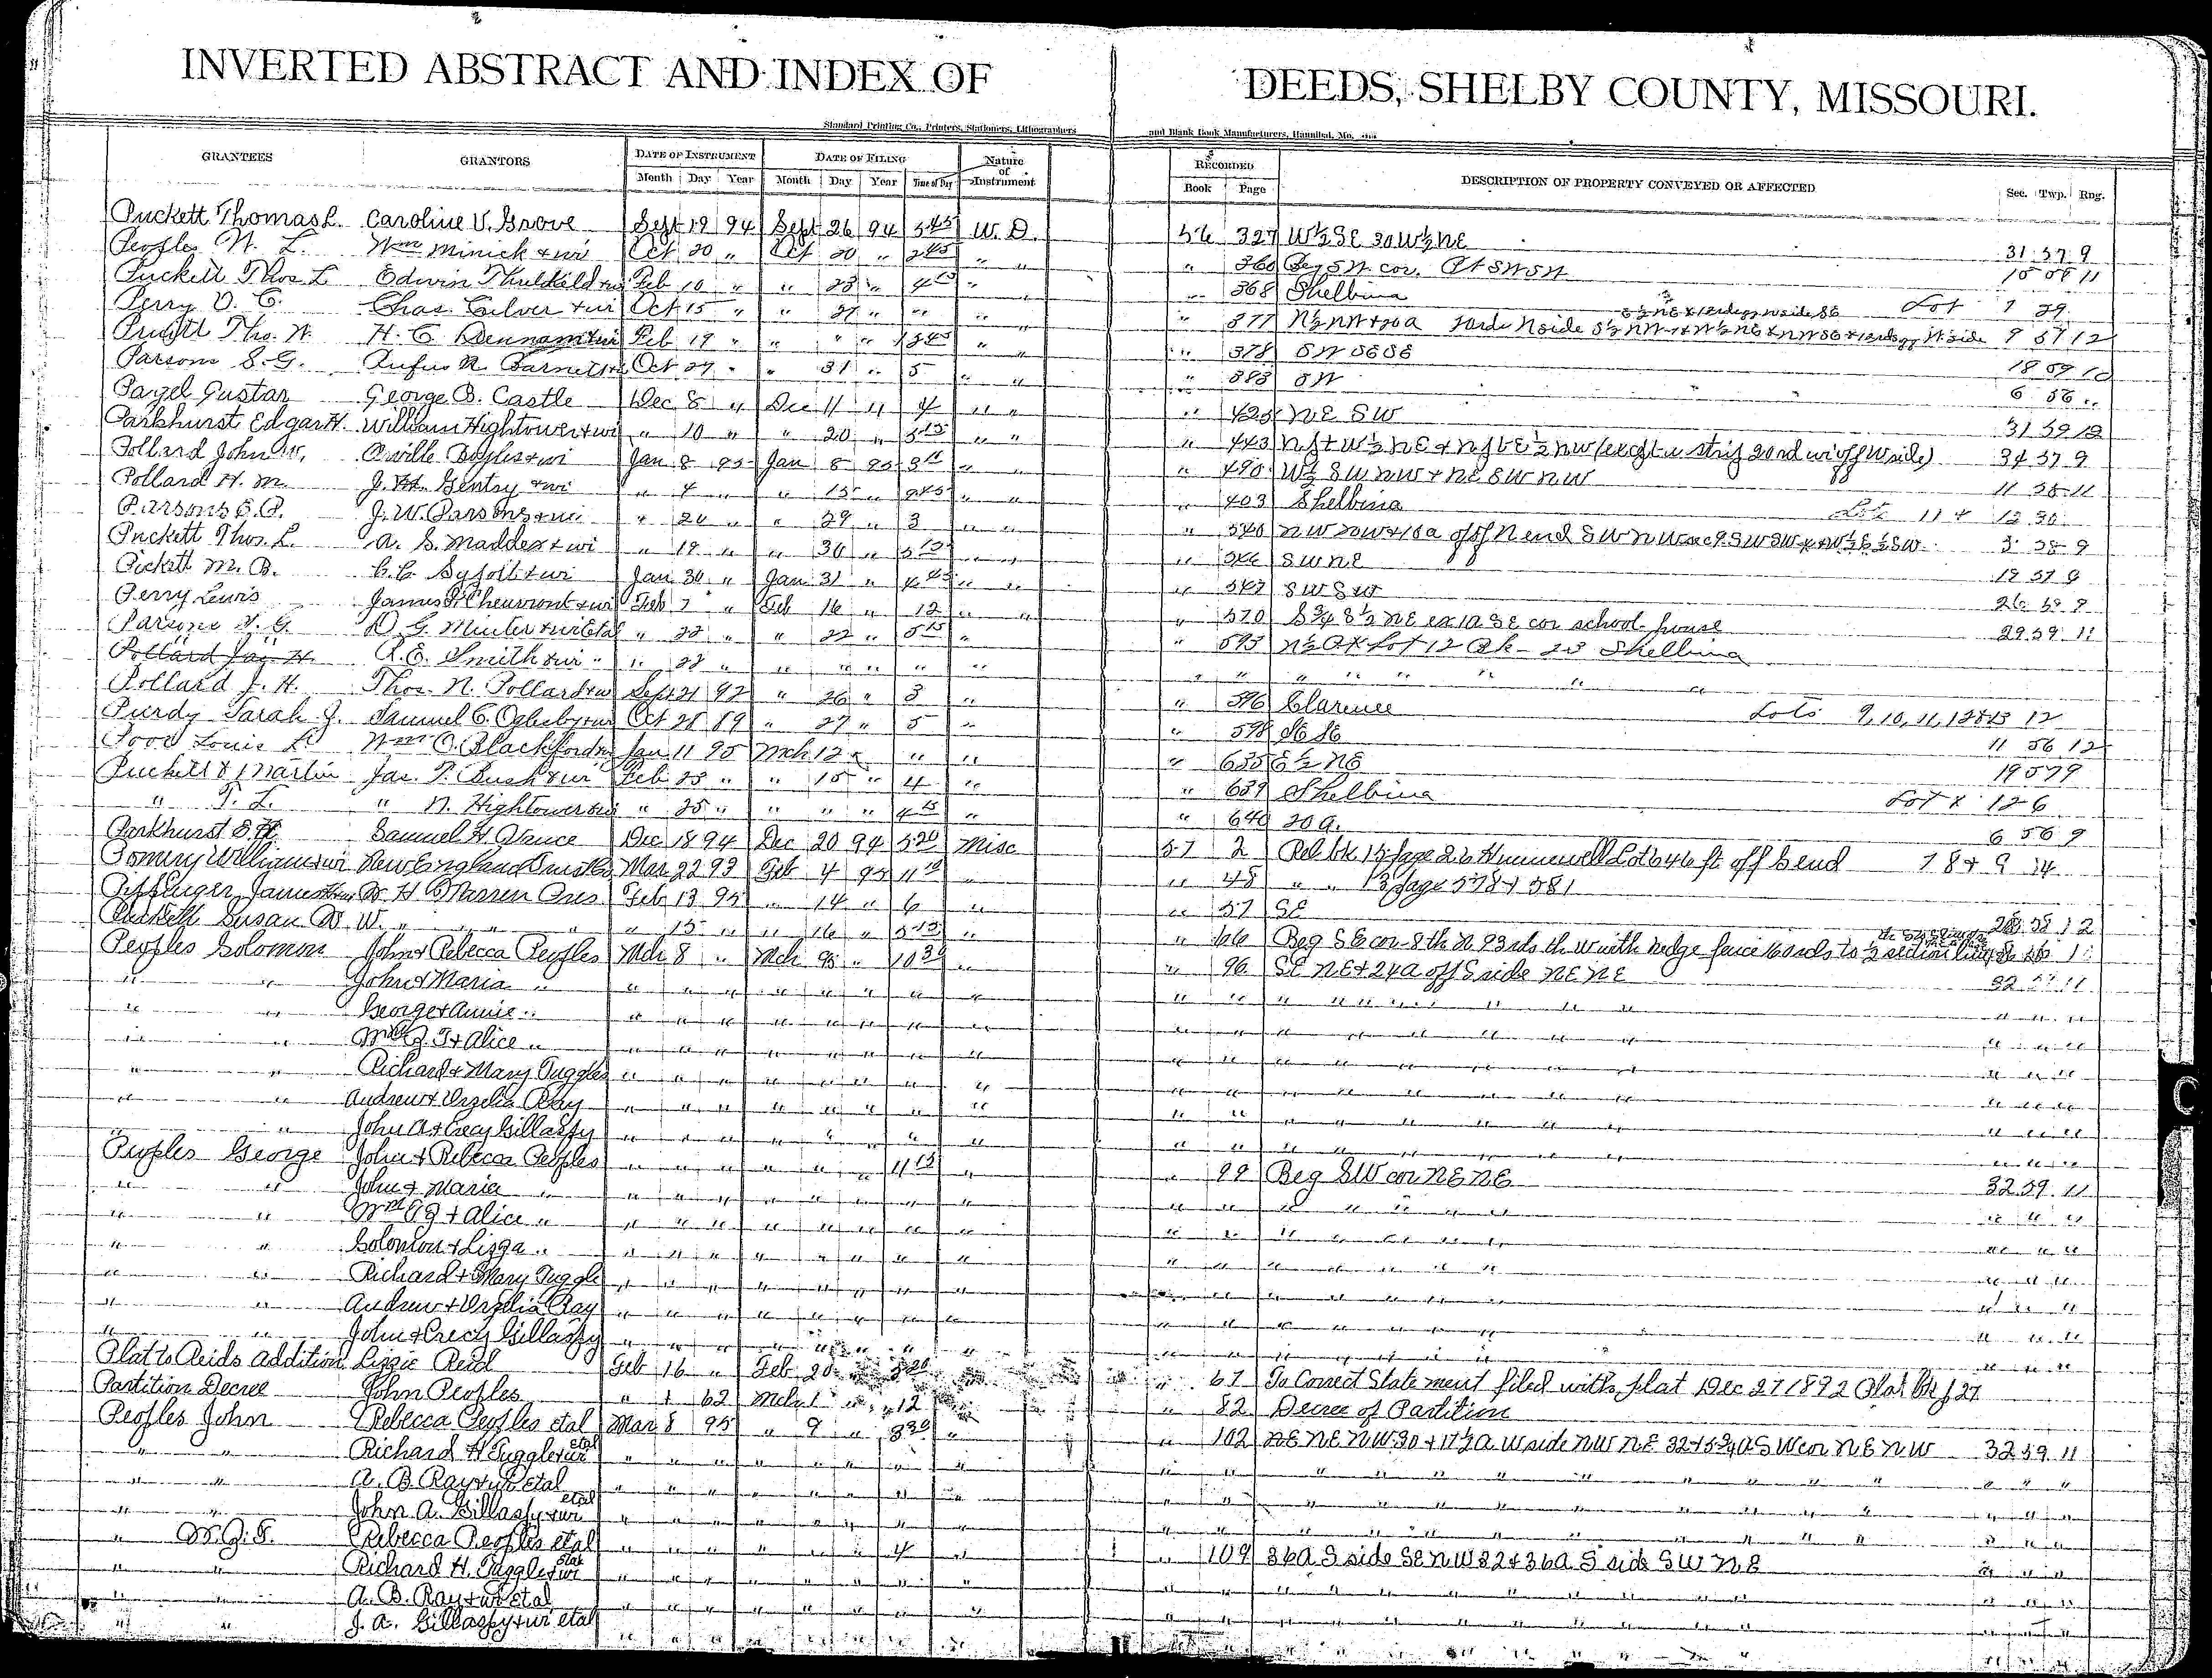 INVERTED ABSTRACT AND INDEX OF DEEDS, SHELBY COUNTY, MISSOURI.
Standard Printing Co., Printers, Stationers, Lithographers and Blank Book Manufacturers, Hannibal, Mo.
GRANTEES GRANTORS DATE OF INSTRUMENT DATE OF FILING Nature of Instrument RECORDED DESCRIPTION OF PROPERTY CONVEYED OR AFFECTED Sec. Twp. Rng.
Month Day Year Month Day Year Time of Day Book Page
Puckett Thomas L. Caroline V. Grove Sept 19 94 Sept 26 94 5 45 W. D. 56 327 W½ SE 30 W½ NE 31 57 9
Peoples W. L. Wm Minick & wi Oct 20 " Oct 20 " 2 45 " " " 360 Beg SW cor. Pt SW SW
Puckett Thos. L Edwin " " 23 " " " 368 Shelbina Lot 1 29
Perry V. C. Chas. Culver & wi Oct 15 " " 27 " " " " 377
Pruett Tho. W. H. C. Feb 19 " " " " " " 378 SW SE SE 18 59 10
Parsons S. G. Rufus N. Barnett Oct 29 " " 31 " 5 " " " 383 SW 6 56 "
Pagel Gustav George B. Castle Dec 8 " Dec 11 " 4 " " " 425 NE SW 31 59 12
Parkhurst Edgar H. William Hightower & wi " 10 " " 20 " 5 15 " " " 443 34 57 9
Pollard John W. Orville & wi Jan 8 95 Jan 8 95 " " " 490 W½ SW NW & NE SW NW 11 58 11
Pollard H. M. J. H. Gentry & wi " 4 " " 15 " 9 45 " " " 403 Shelbina Lots 11 & 12 30
Parsons E. P. J. W. Parsons & wi " 26 " " 29 " 3 " " " 540 NW NW & 10 a off N end SW NW 3 58 9
Puckett Thos. L. A. S. Maddex & wi " 19 " " 30 " 5 15 " " " SW NE 19 57 9
Pickett M. B. C. C. & wi Jan 30 " Jan 31 " 4 45 " " " 547 SW SW 26 59 9
Perry Lewis James P. Cheuvront & wi Feb 7 " Feb 16 " 12 " " " 570 S¾ S½ NE ex 1 a SE cor school house 29 59 11
Parsons S. G. D. G. Minter & wi Etal " 22 " " 22 " 5 15 " " 593 N½ Lot 12 Blk 25 Shelbina
Pollard Jas. H. R. E. Smith & wi " " 22 " " " " " " " "
Pollard J. H. Thos. N. Pollard & wi Sept 21 92 " 26 " 3 " " 596 Clarence Lots 9, 10, 11, 12 & 13 12
Purdy Sarah J. Samuel C. Oglesby & wi Oct 28 89 " 27 " 5 " " 598 SE SE 11 56 12
Pool Louis L Wm O. Blackford Jan 11 95 Mch 12 " " " " 635 E½ NE 19 57 9
Puckett & Martin Jas. T. Bush & wi Feb 25 " " 15 " 4 " " 639 Shelbina Lot 12 6
" T. L. " N. Hightower & wi " 25 " " " " 4 15 " 640 20 a. 6 56 9
Parkhurst E. H. Samuel H. Vance Dec 18 94 Dec 20 94 5 20 Misc 57 2 Rel bk 15 page 26 Hunnewell Lot 6 46 ft off S end 7 8 & 9 14
Pomery William & wi New England Mar 22 93 Feb 4 95 11 10 " " 48 " " 13 page 578 & 581
James Feb 13 95 " 14 " 6 " " 57 SE 12
Puckett Susan W. " " " 15 " " 16 " 5 15 " " 66 Beg SE cor 8 th N 93 rds th W with hedge fence 160 rds to ½ section line
Peoples Solomon John & Rebecca Peoples Mch 8 " Mch 95 " 10 30 " " 96 SE NE & 24 a off S side NE NE 32 59 11
" " John & Maria " " " " " " " " " " " " " " " "
" " George & Annie " " " " " " " " " " " " " " " "
" " Wm J. T & Alice " " " " " " " " " " " " " " " "
" " Richard & Mary Tuggle " " " " " " " " " " " " " " "
" " Andrew & Urzelia Ray " " " " " " " " " " " " " " "
" John A & Crecy Gillaspy " " " " " " " " " " " " " " "
Peoples George John & Rebecca Peoples " " " " " " 11 15 " " 99 Beg SW cor NE NE 32 59 11
" " John & Maria " " " " " " " " " " " " " " " "
" " Wm & Alice " " " " " " " " " " " " " " " "
" " Solomon & Lizza " " " " " " " " " " " " " " " "
" " Richard & Mary Tuggle " " " " " " " " " " " " " " "
" " Andrew & Urzelia Ray " " " " " " " " " " " " " " "
" " John & Crecy Gillaspy " " " " " " " " " " " " " " "
Plat to Reids Addition Lizzie Reid Feb 16 " Feb 20 " 3 20 " 67 To Correct Statement filed with plat Dec 27 1892 Plat bk p 27
Partition Decree John Peoples " 1 62 Mch 1 " 12 " 82 Decree of Partition
Peoples John Rebecca Peoples etal Mar 8 95 " 9 " 8 30 " " 102 NE NE NW 30 & 17½ a W side NW NE 32 & 5¾ a SW cor NE NW 32 59 11
" " Richard H Tuggle & wi etal " " " " " " " " " " " " " " "
" " A. B. Ray & wi Etal " " " " " " " " " " " " " " "
" " John A. Gillaspy & wi etal " " " " " " " " " " " " " " "
" W. J. T. Rebecca Peoples etal " " " " " " 4 " " 109 36 a S side SE NW 32 & 36 a S side SW NE " " "
" " Richard H. Tuggle & wi etal " " " " " " " " " " " " " " "
" " A. B. Ray & wi Etal " " " " " " " " " " " " " " "
" " J. A. Gillaspy & wi etal " " " " " " " " " " " " " " "